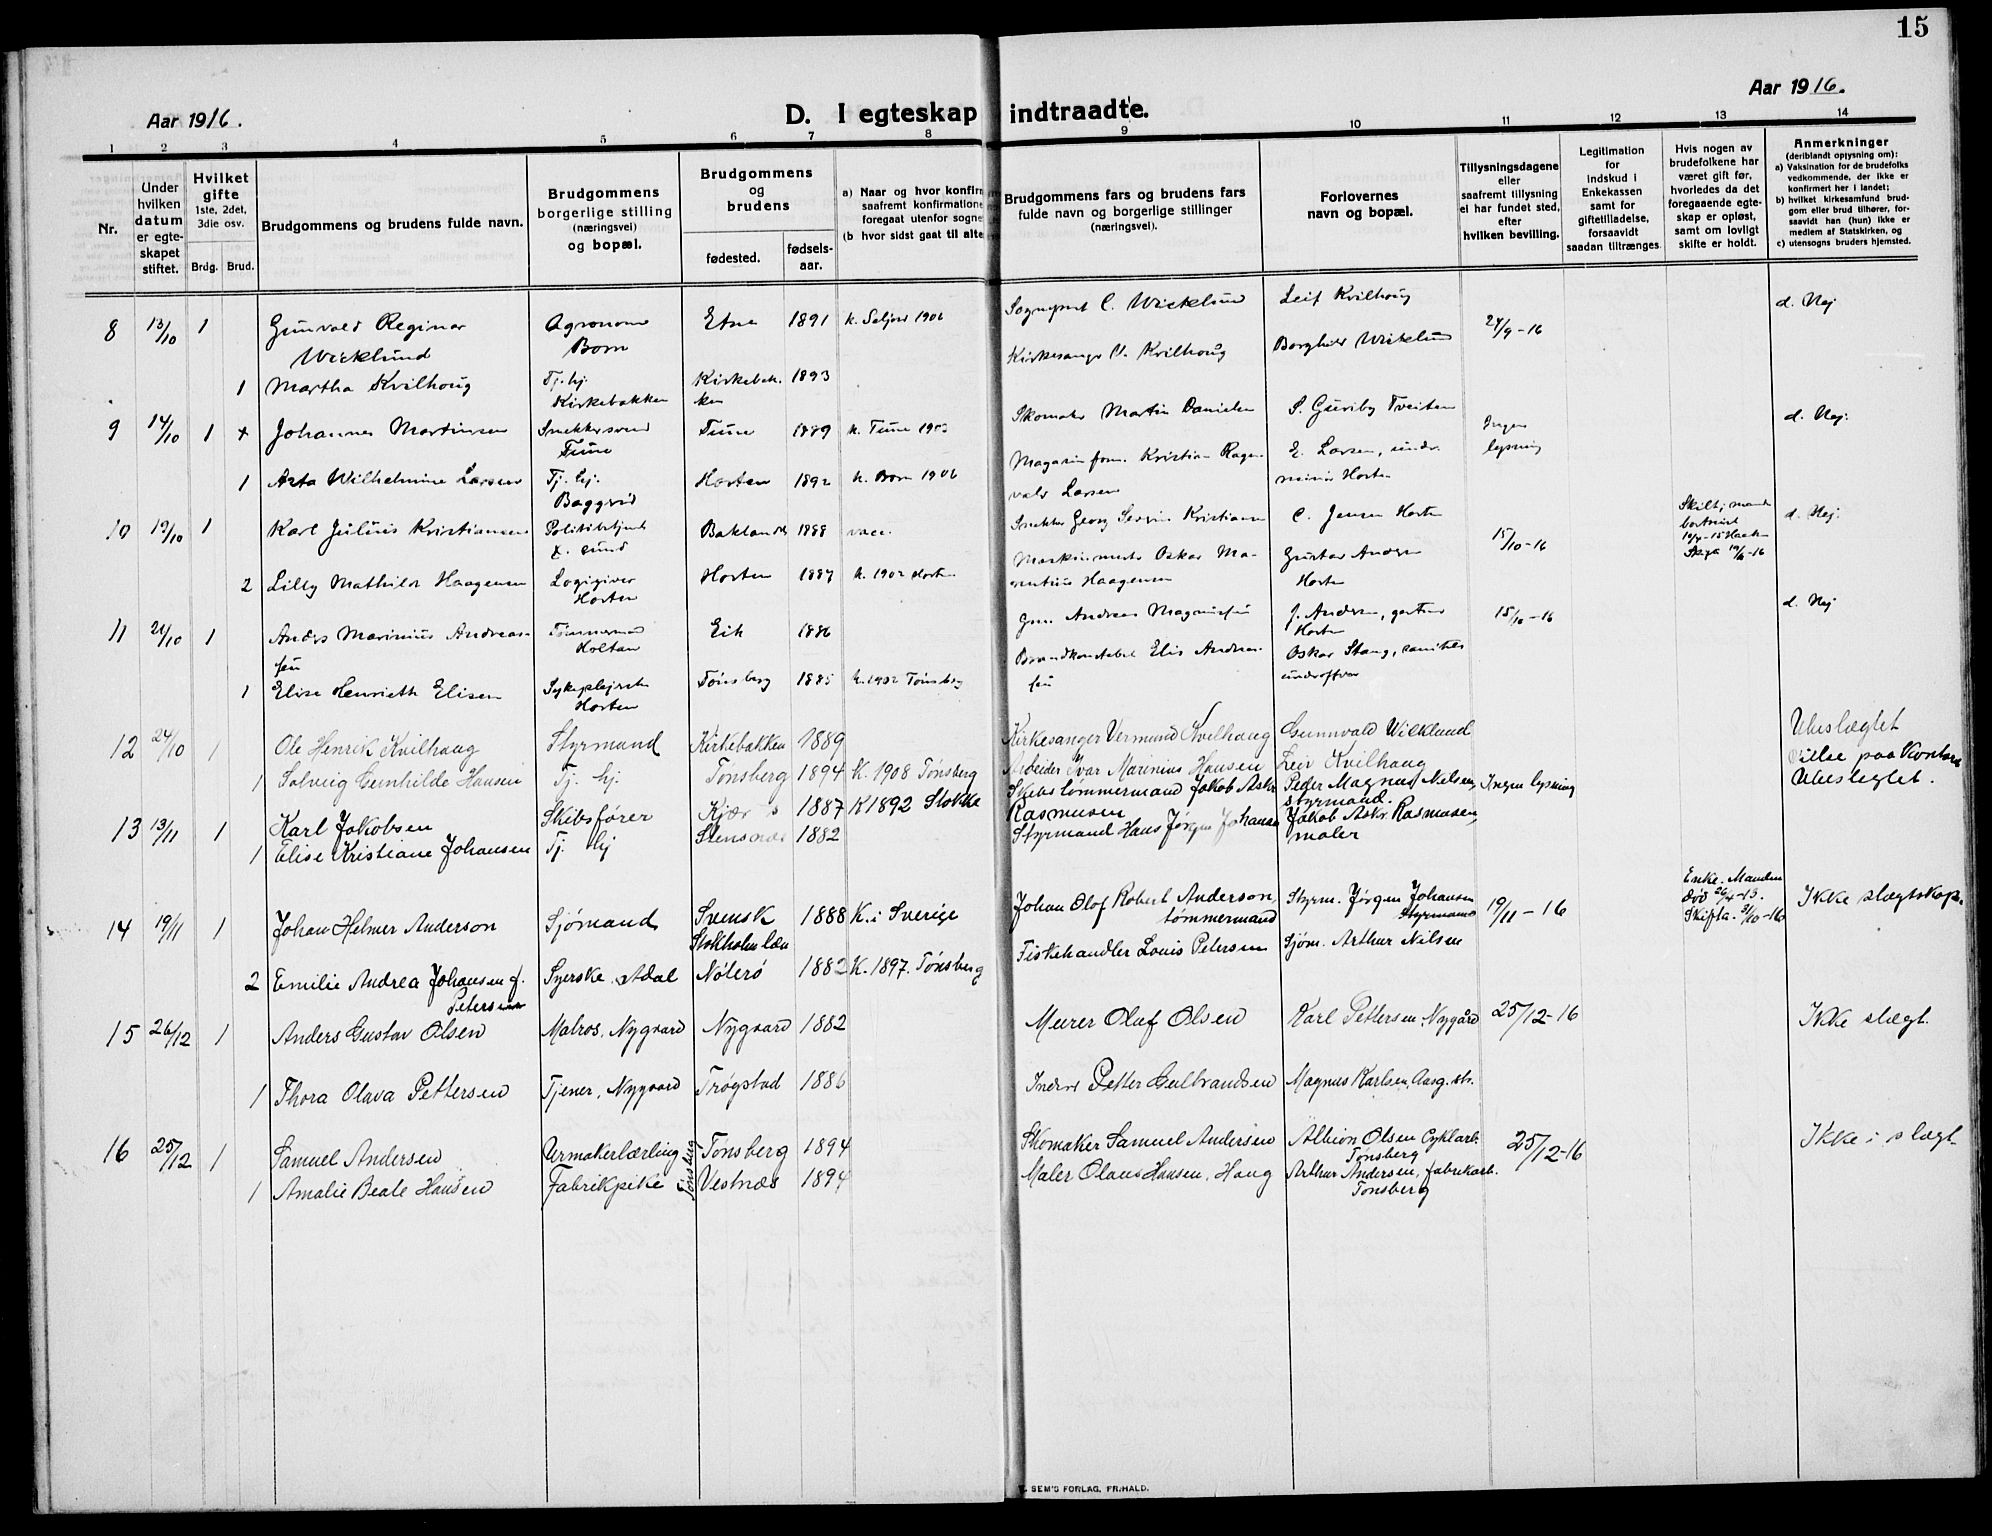 15
Aar 1916.
Aar 1916.
D. I egteskap indtraadte.
1 2 3 4 5 6 7 8 9 10 11 12 13 14
Nr.
Under hvilken datum er egte-skapet stiftet.
Hvilket gifte
1ste, 2det, 3die osv.
Brdg. Brud.
Brudgommens og brudens fulde navn.
Brudgommens borgerlige stilling (næringsvei) og bopæl.
Brudgommens og brudens
fødested.
fødsels-aar.
a) Naar og hvor konfirm
saafremt konfirmatione
foregaat utenfor sogne
(b hvor sidst gaat til alte
Brudgommens fars og brudens fars
fulde navn og borgerlige stillinger
(næringsvei).
Forlovernes
navn og bopæl.
Tillysningsdagene
eller
saafremt tillysning
ei har fundet sted,
efter
hvilken bevilling.
Legitimation
for
indskud i
Enkekassen
samt for
giftetilladelse,
forsaavidt
saadan tiltrænges.
Hvis nogen av
brudefolkene har
været gift før,
hvorledes da det
foregaaende egte-
skap er opløst,
samt om lovligt
skifte er holdt.
Anmerkninger
(deriblandt opjysning om):
a) Vaksination for de brudefolks
vedkommende, der ikke er
konfirmert her i landet;
b) hvilket kirkesamfund brud-
gom eller brud tilhører, for-
saavidt han (hun) ikke er
medlem af Statskirken, og
c) utensogns bruders hjemsted.
8 13/10 1 Gunvald Reginar Agronom Etne 1891 k. Seljord 1906 C. Wicklund Leif Kvilhoug 24/9-16 d. Nej
Wicklund Born Kirkesanger V. Kvilhoug Borghild Wicklund
1 Martha Kvilhoug Tj. hj. Kirkebak- 1893
Kirkebakken ken
9 14/10 1 Johannes Martinsen Snekkersvend Tune 1889 k. Tune 1903 Skomaker Martin Danielsen Tveiten Ingen d. Nej.
Tune lysning
1 Asta Wilhelmine Larsen Tj. hj. Horten 1892 k. Born 1906 Magasinform. Kristian Ragn- E. Larsen, under-
vald Larsen Horten
10 19/10 1 Karl Julius Kristiansen Politibetjent Baklandet 1888 vacc. Snekker Georg Kristiansen C. Jensen Horten 15/10-16 d. Nej.
2 Lilly Mathilde Haagensen Logigiver Horten 1887 k. 1902 Horten Maskinmester Oskar Ma- Gustav Andersen
Horten Haagensen Horten
11 21/10 1 Anders Marinius Andreas- Tømmermand Eik 1886 Andreas J. Andersen, gartner 15/10-16 d. Nej
sen Holtan Horten
1 Elise Henriette Elisen Sykeplejerske Tønsberg 1885 k. 1902 Tønsberg Brandkonstabel Elis Andrea- Oskar Stang, sanitets
Horten sen underofficer
12 24/10 1 Ole Henrik Kvilhaug Styrmand Kirkebakken 1889 Kirkesanger Vermund Kvilhaug Gunnvald Wiklund Ubeslægtet
1 Solveig Gunhilde Hansen Tj. hj Tønsberg 1894 K. 1908 Tønsberg Arbeider Ivar Marinius Hansen Leiv Kvilhaug Vielse paa Kontoret
13 13/11 1 Karl Jakobsen Skibsfører Kjær 1887 K 1892 Stokke Skibstømmermand Jakob Askr. Rasmusen Peder Magnus Nielsen, styrmand. Ingen lysning Ubeslegtet.
1 Elise Kristiane Johansen Tj. hj 1882 Styrmand Hans Jørgen Johansen Jakob Askr Rasmusen, maler
14 19/11 1 Johan Helmer Anderson Sjømand Svensk 1888 K. i Sverige Johan Olof Robert Anderson, tømmermand Styrm. Jørgen Johansen Styrmand 19/11-16 Enke. Manden død 26/4-13. Skifte 31/10-16 Ikke slægtskap.
Stokholm læn
2 Emilie Andrea Johansen f. Petersen Syerske. Adal Nøterø 1882 K. 1897. Tønsberg Fiskehandler Louis Petersen Sjøm. Arthur Nilsen
15 26/12 1 Anders Gustav Olsen Matros, Nygaard Nygaard 1882 Murer Olaf Olsen Karl Pettersen, Nygård 25/12-16 Ikke slægt.
1 Thora Olava Pettersen Tjener, Nygaard Trøgstad 1886 Inderst Petter Gulbrandsen Magnus Karlsen, Aasg. str.
16 25/12 1 Samuel Andersen Urmakerlærling Tønsberg Tønsberg 1894 Skomaker Samuel Andersen Albion Olsen Cyklarb. Tønsberg 25/12-16 Ikke i slægt
1 Amalie Beate Hansen Fabrikpike Vestnæs 1894 Maler Olaus Hansen, Haug Arthur Andersen, fabrikarb. Tønsberg
SEM'S FORLAG, FR.HALD.